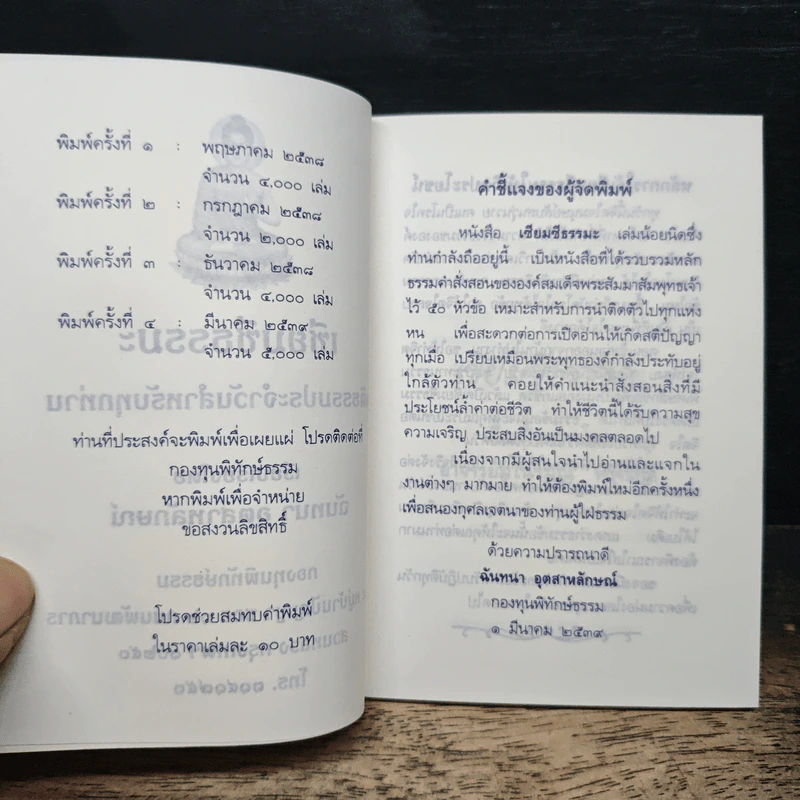 พิมพ์ครั้งที่ ๑ : พฤษภาคม ๒๕๓๘
จำนวน ๔,๐๐๐ เล่ม
พิมพ์ครั้งที่ ๒ : กรกฎาคม ๒๕๓๘
จำนวน ๒,๐๐๐ เล่ม
พิมพ์ครั้งที่ ๓ : ธันวาคม ๒๕๓๘
จำนวน ๔,๐๐๐ เล่ม
พิมพ์ครั้งที่ ๔ : มีนาคม ๒๕๓๙
จำนวน ๕,๐๐๐ เล่ม
ท่านที่ประสงค์จะพิมพ์เพื่อเผยแผ่ โปรดติดต่อที่
กองทุนพิทักษ์ธรรม
หากพิมพ์เพื่อจำหน่าย
ขอสงวนลิขสิทธิ์
โปรดช่วยสมทบค่าพิมพ์
ในราคาเล่มละ ๑๐ บาท
คำชี้แจงของผู้จัดพิมพ์
หนังสือ เซียมซีธรรมะ เล่มน้อยนิดซึ่ง
ท่านกำลังถืออยู่นี้ เป็นหนังสือที่ได้รวบรวมหลัก
ธรรมคำสั่งสอนขององค์สมเด็จพระสัมมาสัมพุทธเจ้า
ไว้ ๕๐ หัวข้อ เหมาะสำหรับการนำติดตัวไปทุกแห่ง
หน เพื่อสะดวกต่อการเปิดอ่านให้เกิดสติปัญญา
ทุกเมื่อ เปรียบเหมือนพระพุทธองค์กำลังประทับอยู่
ใกล้ตัวท่าน คอยให้คำแนะนำสั่งสอนสิ่งที่มี
ประโยชน์ล้ำค่าต่อชีวิต ทำให้ชีวิตนี้ได้รับความสุข
ความเจริญ ประสบสิ่งอันเป็นมงคลตลอดไป
เนื่องจากมีผู้สนใจนำไปอ่านและแจกใน
งานต่างๆ มากมาย ทำให้ต้องพิมพ์ใหม่อีกครั้งหนึ่ง
เพื่อสนองกุศลเจตนาของท่านผู้ใฝ่ธรรม
ด้วยความปรารถนาดี
ฉันทนา อุตสาหลักษณ์
กองทุนพิทักษ์ธรรม
๑ มีนาคม ๒๕๓๙